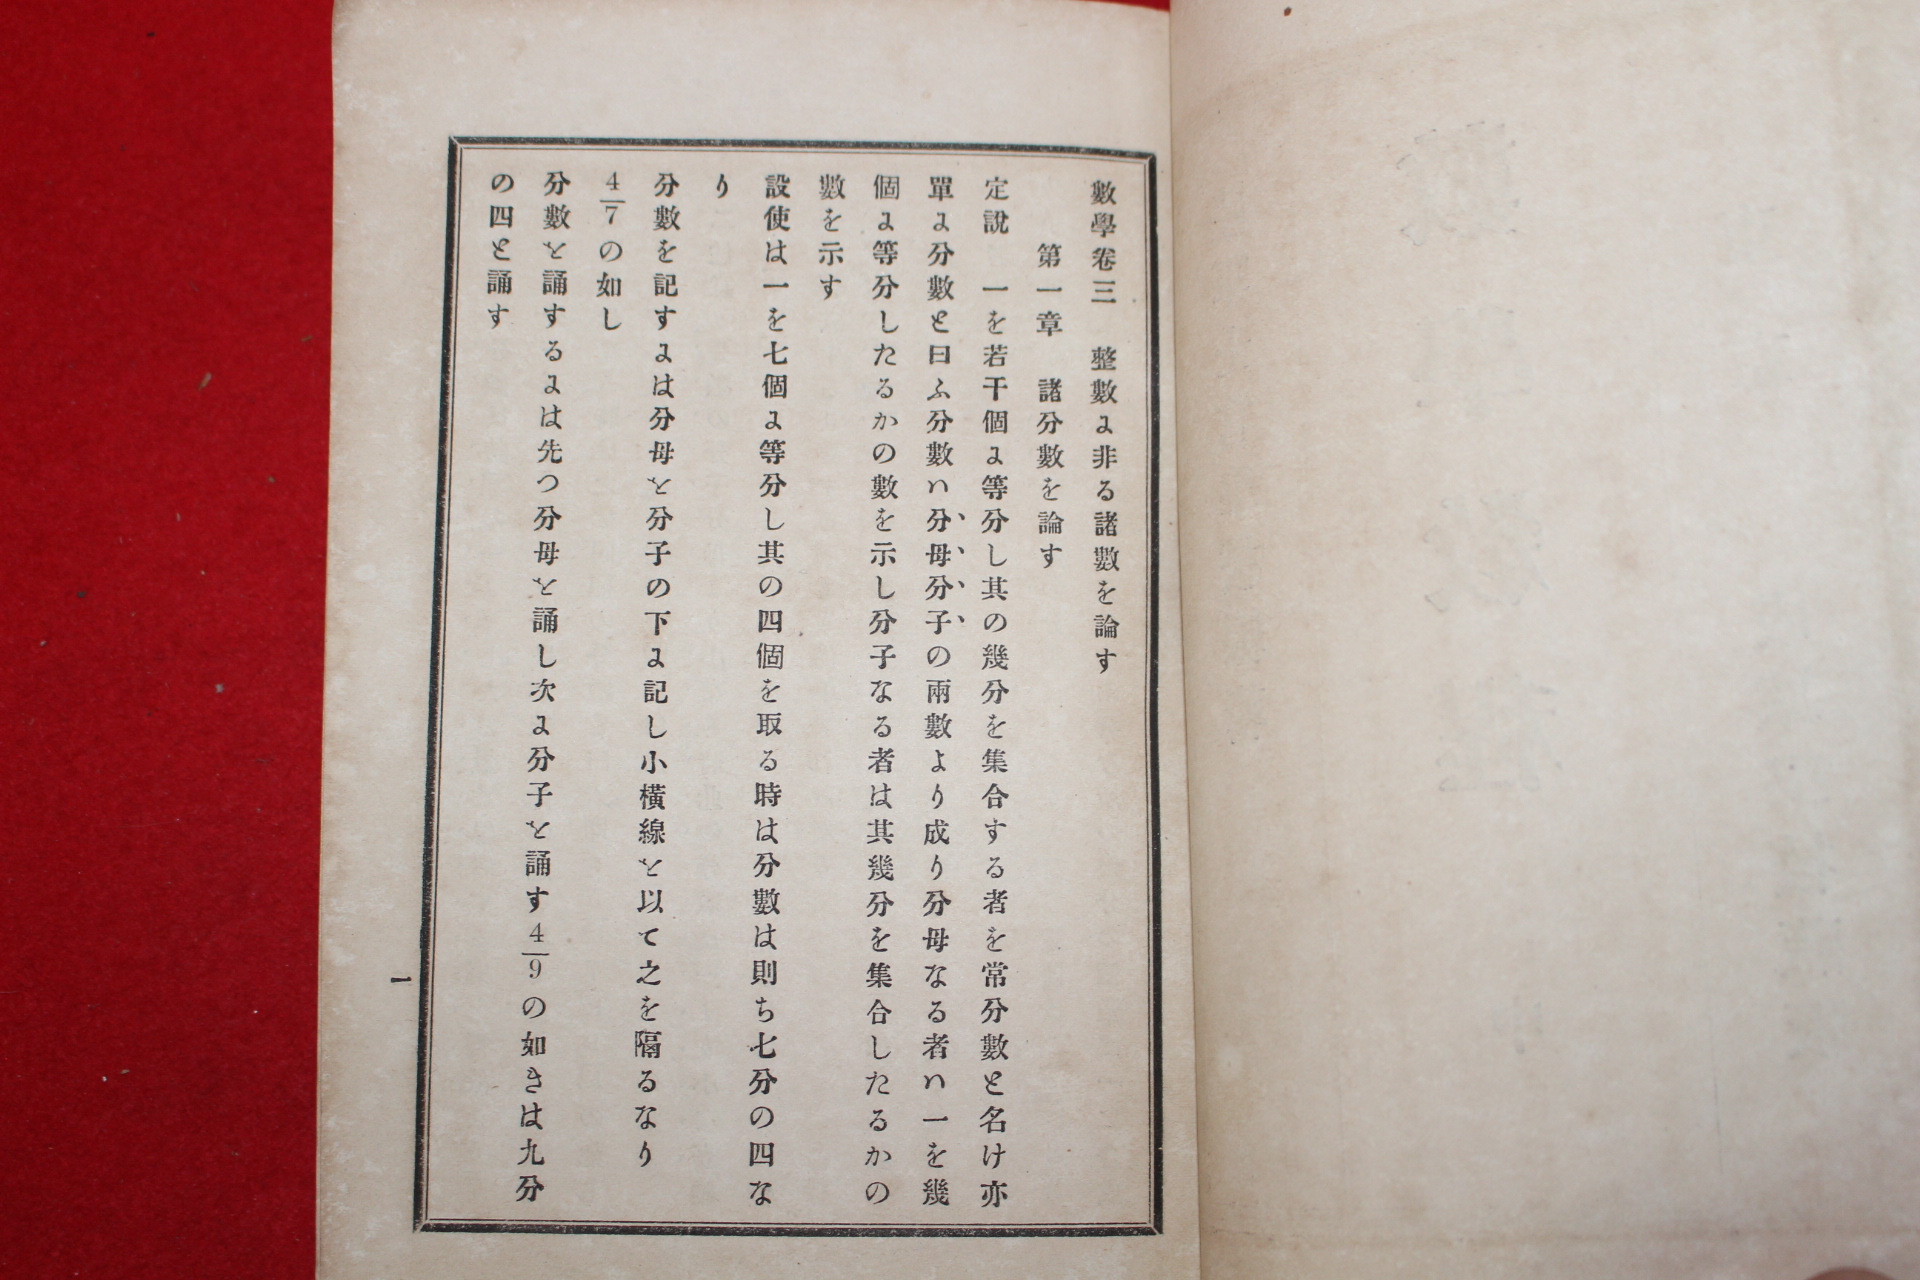 數學卷三　整數に非る諸數を論す
第一章　諸分數を論す
定說　一を若干個に等分し其の幾分を集合する者を常分數と名け亦
單に分數と曰ふ分數ハ分母分子の兩數より成り分母なる者ハ一を幾
個に等分したるかの數を示し分子なる者は其幾分を集合したるかの
數を示す
設使は一を七個に等分し其の四個を取る時は分數は則ち七分の四な
り
分數を記すには分母を分子の下に記し小橫線を以て之を隔るなり
4/7の如し
分數を誦するには先つ分母を誦し次に分子を誦す4/9の如きは九分
の四と誦す
一